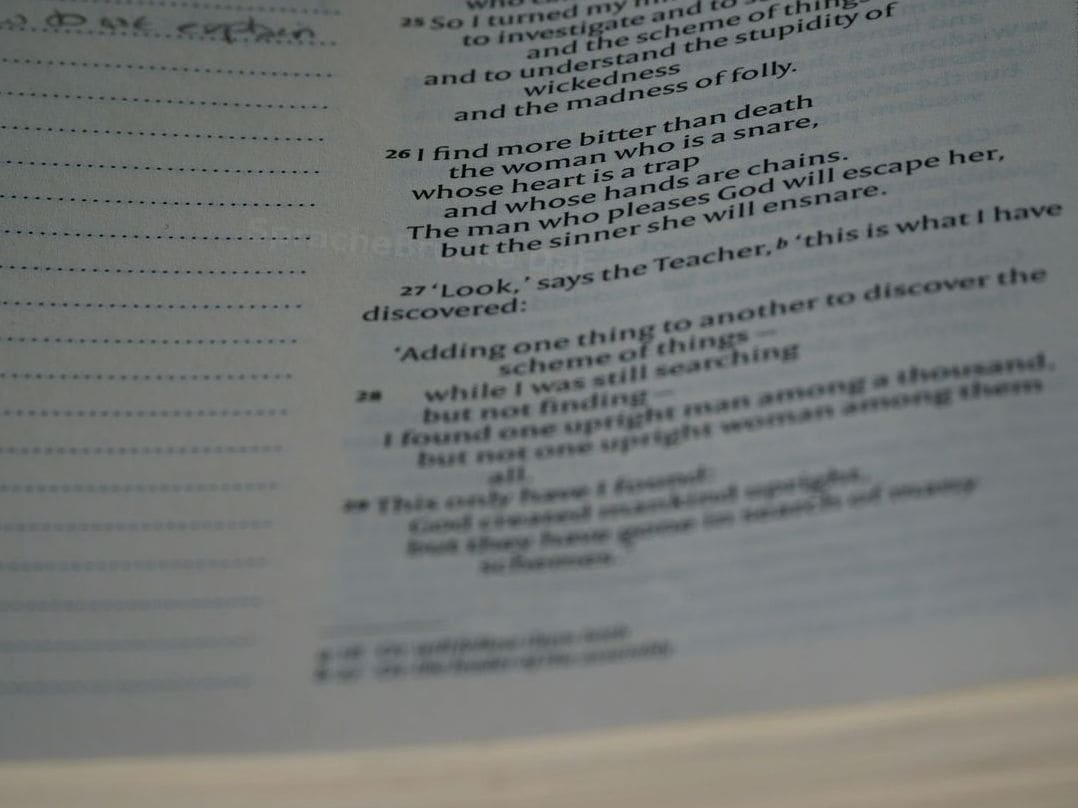 do we explain
25 So I turned my
to investigate and to
and the scheme of things
and to understand the stupidity of
wickedness
and the madness of folly.
26 I find more bitter than death
the woman who is a snare,
whose heart is a trap
and whose hands are chains.
The man who pleases God will escape her,
but the sinner she will ensnare.
27 ‘Look,’ says the Teacher, b ‘this is what I have
discovered:
‘Adding one thing to another to discover the
scheme of things –
28 while I was still searching
but not finding –
I found one upright man among a thousand,
but not one upright woman among them
all.
29 This only have I found:
God created mankind upright,
but they have gone in search of many
schemes.’